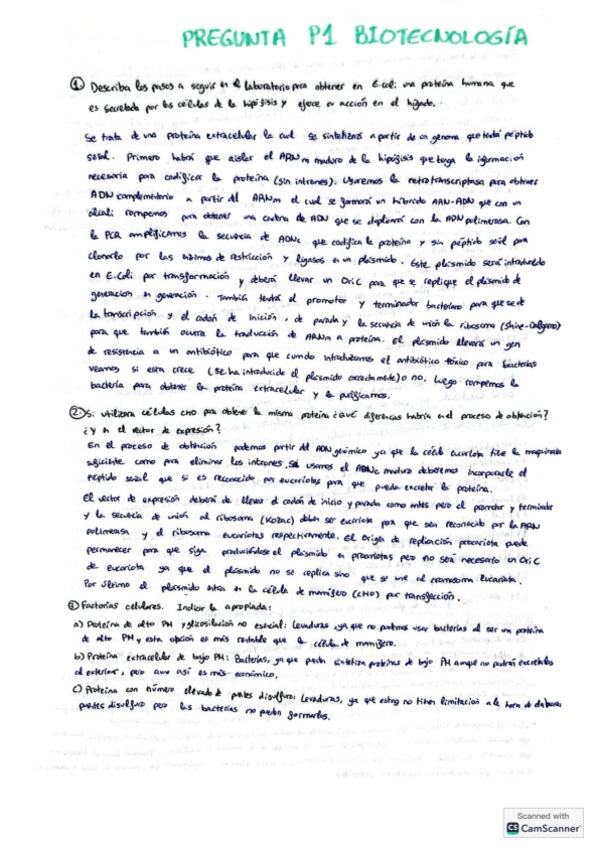 PREGUNTA P1 BIOTECNOLOGÍA
① Describa los pasos a seguir en el laboratorio para obtener en E.coli una proteína humana que
es secretada por las células de la hipófisis y ejerce su acción en el hígado.
Se trata de una proteína extracelular la cual se sintetizará a partir de un genoma que tendrá péptido
señal. Primero habrá que aislar el ARNm maduro de la hipófisis que tenga la información
necesaria para codificar la proteína (sin intrones). Usaremos la retrotranscriptasa para obtener
ADN complementario a partir del ARNm el cual se formará un híbrido ARN-ADN que con un
alcali rompemos para obtener una cadena de ADN que se duplicará con la ADN polimerasa. Con
la PCR amplificamos la secuencia de ADNc que codifica la proteína y sin péptido señal para
clonarlo por las enzimas de restricción y ligasas en un plásmido. Este plásmido será introducido
en E.Coli por transformación y deberá llevar un OriC para que se replique el plásmido de
generación en generación. También tendrá el promotor y terminador bacteriano para que se dé
la transcripción y el codón de inicio, de parada y la secuencia de unión la ribosoma (Shine-Dalgarno)
para que también ocurra la traducción de ARNm a proteína. El plásmido llevará un gen
de resistencia a un antibiótico para que cuando introduzcamos el antibiótico tóxico para bacterias
veamos si esta crece (se ha introducido el plásmido correctamente) o no. Luego rompemos la
bacteria para obtener la proteína extracelular y la purificamos.
② Si utilizara células CHO para obtener la misma proteína ¿qué diferencias habría en el proceso de obtención?
¿Y en el vector de expresión?
En el proceso de obtención podemos partir del ADN genómico ya que la célula eucariota tiene la maquinaria
suficiente como para eliminar los intrones. Si usamos el ARNm maduro deberemos incorporarle el
péptido señal que si es reconocido por eucariotas para que pueda excretar la proteína.
El vector de expresión deberá de llevar el codón de inicio y parada como antes pero el promotor y terminador
y la secuencia de unión al ribosoma (Kozac) deben ser eucariota para que sean reconocido por la ARN
polimerasa y el ribosoma eucariotas respectivamente. El origen de replicación procariota puede
permanecer para que siga produciéndose el plásmido en procariotas pero no será necesario un OriC
de eucariota ya que el plásmido no se replica sino que se une al cromosoma eucariota.
Por último el plásmido entra en la célula de mamífero (CHO) por transfección.
③ Factorías celulares. Indicar la apropiada:
a) Proteína de alto PM y glicosilación no esencial: Levaduras, ya que no podemos usar bacterias al ser un proteína
de alto PM y esta opción es más rentable que la células de mamífero.
b) Proteína extracelular de bajo PM: Bacterias, ya que pueden sintetizar proteínas de bajo PM aunque no podrán excretarlas
al exterior, pero aun así es más económico.
c) Proteína con número elevado de puentes disulfuro: Levaduras, ya que estas no tienen limitación a la hora de elaborar
puentes disulfuro pero las bacterias no pueden formarlos.
Scanned with
CS CamScanner